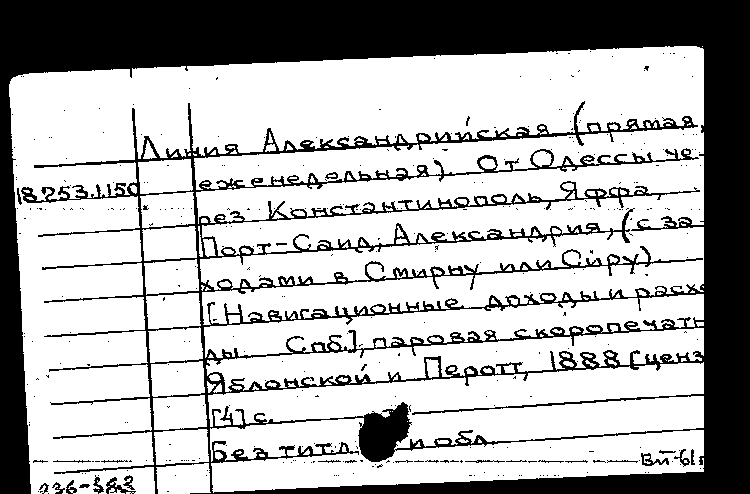 Линия Александрийская (прямая,
18.253.1.150 еженедельная). От Одессы че-
рез Константинополь, Яффа,
Порт-Саид, Александрия, (с за-
ходами в Смирну или Сиру).
[Навигационные доходы и расхо
ды. Спб.], паровая скоропечатн
Яблонской и Перотт, 1888 [ценз
[4] с.
Без титл. и обл.
236-383